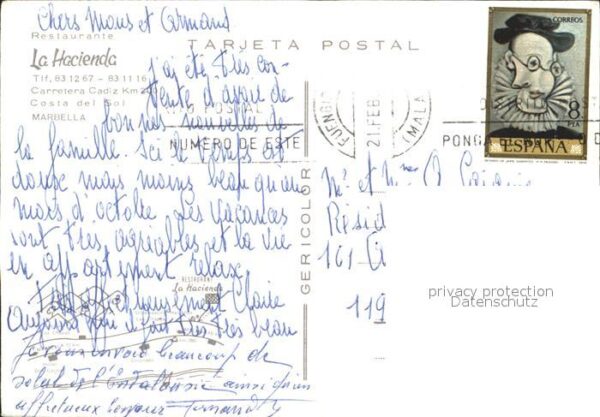 Chers Mous et Armand
Restaurante
La Hacienda
Tlf, 83 12 67 - 83 11 16
Carretera Cadiz Km
Costa del Sol
MARBELLA
TARJETA POSTAL
CORREOS
8
PTA
ESPAÑA
j'ai été très con-
tente d'avoir de
bonnes nouvelles de
la famille. Ici le temps est
doux mais moins beau qu'au
mois d'octobre. Les vacances
sont très agréables et la vie
en appartement relaxe.
affectueusement Claire
Aujourd'hui il fait très très beau
Je vous envoie beaucoup de
soleil de l'Andalousie ainsi qu'un
affectueux bonjour
NUMERO DE ESTE
21 FEB
FUENGIR
(MALA
PONGA
GERICOLOR
RESTAURANT
La Hacienda
Mr et Mme
Résid
161
119
privacy protection
Datenschutz